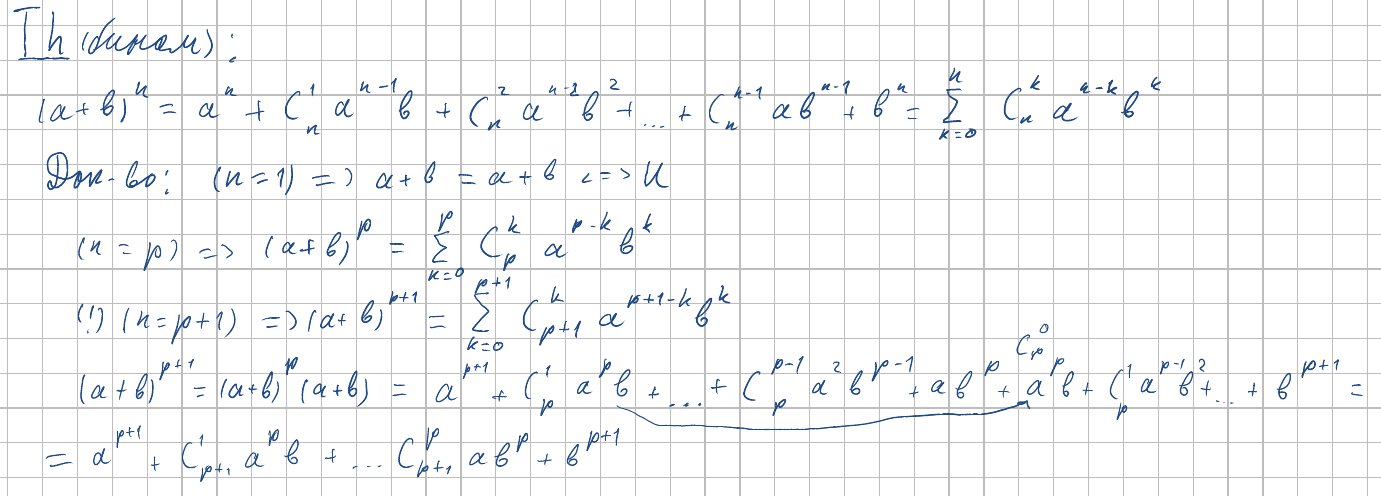 Th (бином):
(a+b)^n = a^n + C_n^1 a^{n-1} b + C_n^2 a^{n-2} b^2 + ... + C_n^{n-1} a b^{n-1} + b^n = \sum_{k=0}^{n} C_n^k a^{n-k} b^k
Док-во: (n=1) => a+b = a+b <=> И
(n=p) => (a+b)^p = \sum_{k=0}^{p} C_p^k a^{p-k} b^k
(!) (n=p+1) => (a+b)^{p+1} = \sum_{k=0}^{p+1} C_{p+1}^k a^{p+1-k} b^k
C_p^0
(a+b)^{p+1} = (a+b)^p (a+b) = a^{p+1} + C_p^1 a^p b + ... + C_p^{p-1} a^2 b^{p-1} + a b^p + a^p b + C_p^1 a^{p-1} b^2 + ... + b^{p+1} =
= a^{p+1} + C_{p+1}^1 a^p b + ... C_{p+1}^p a b^p + b^{p+1}